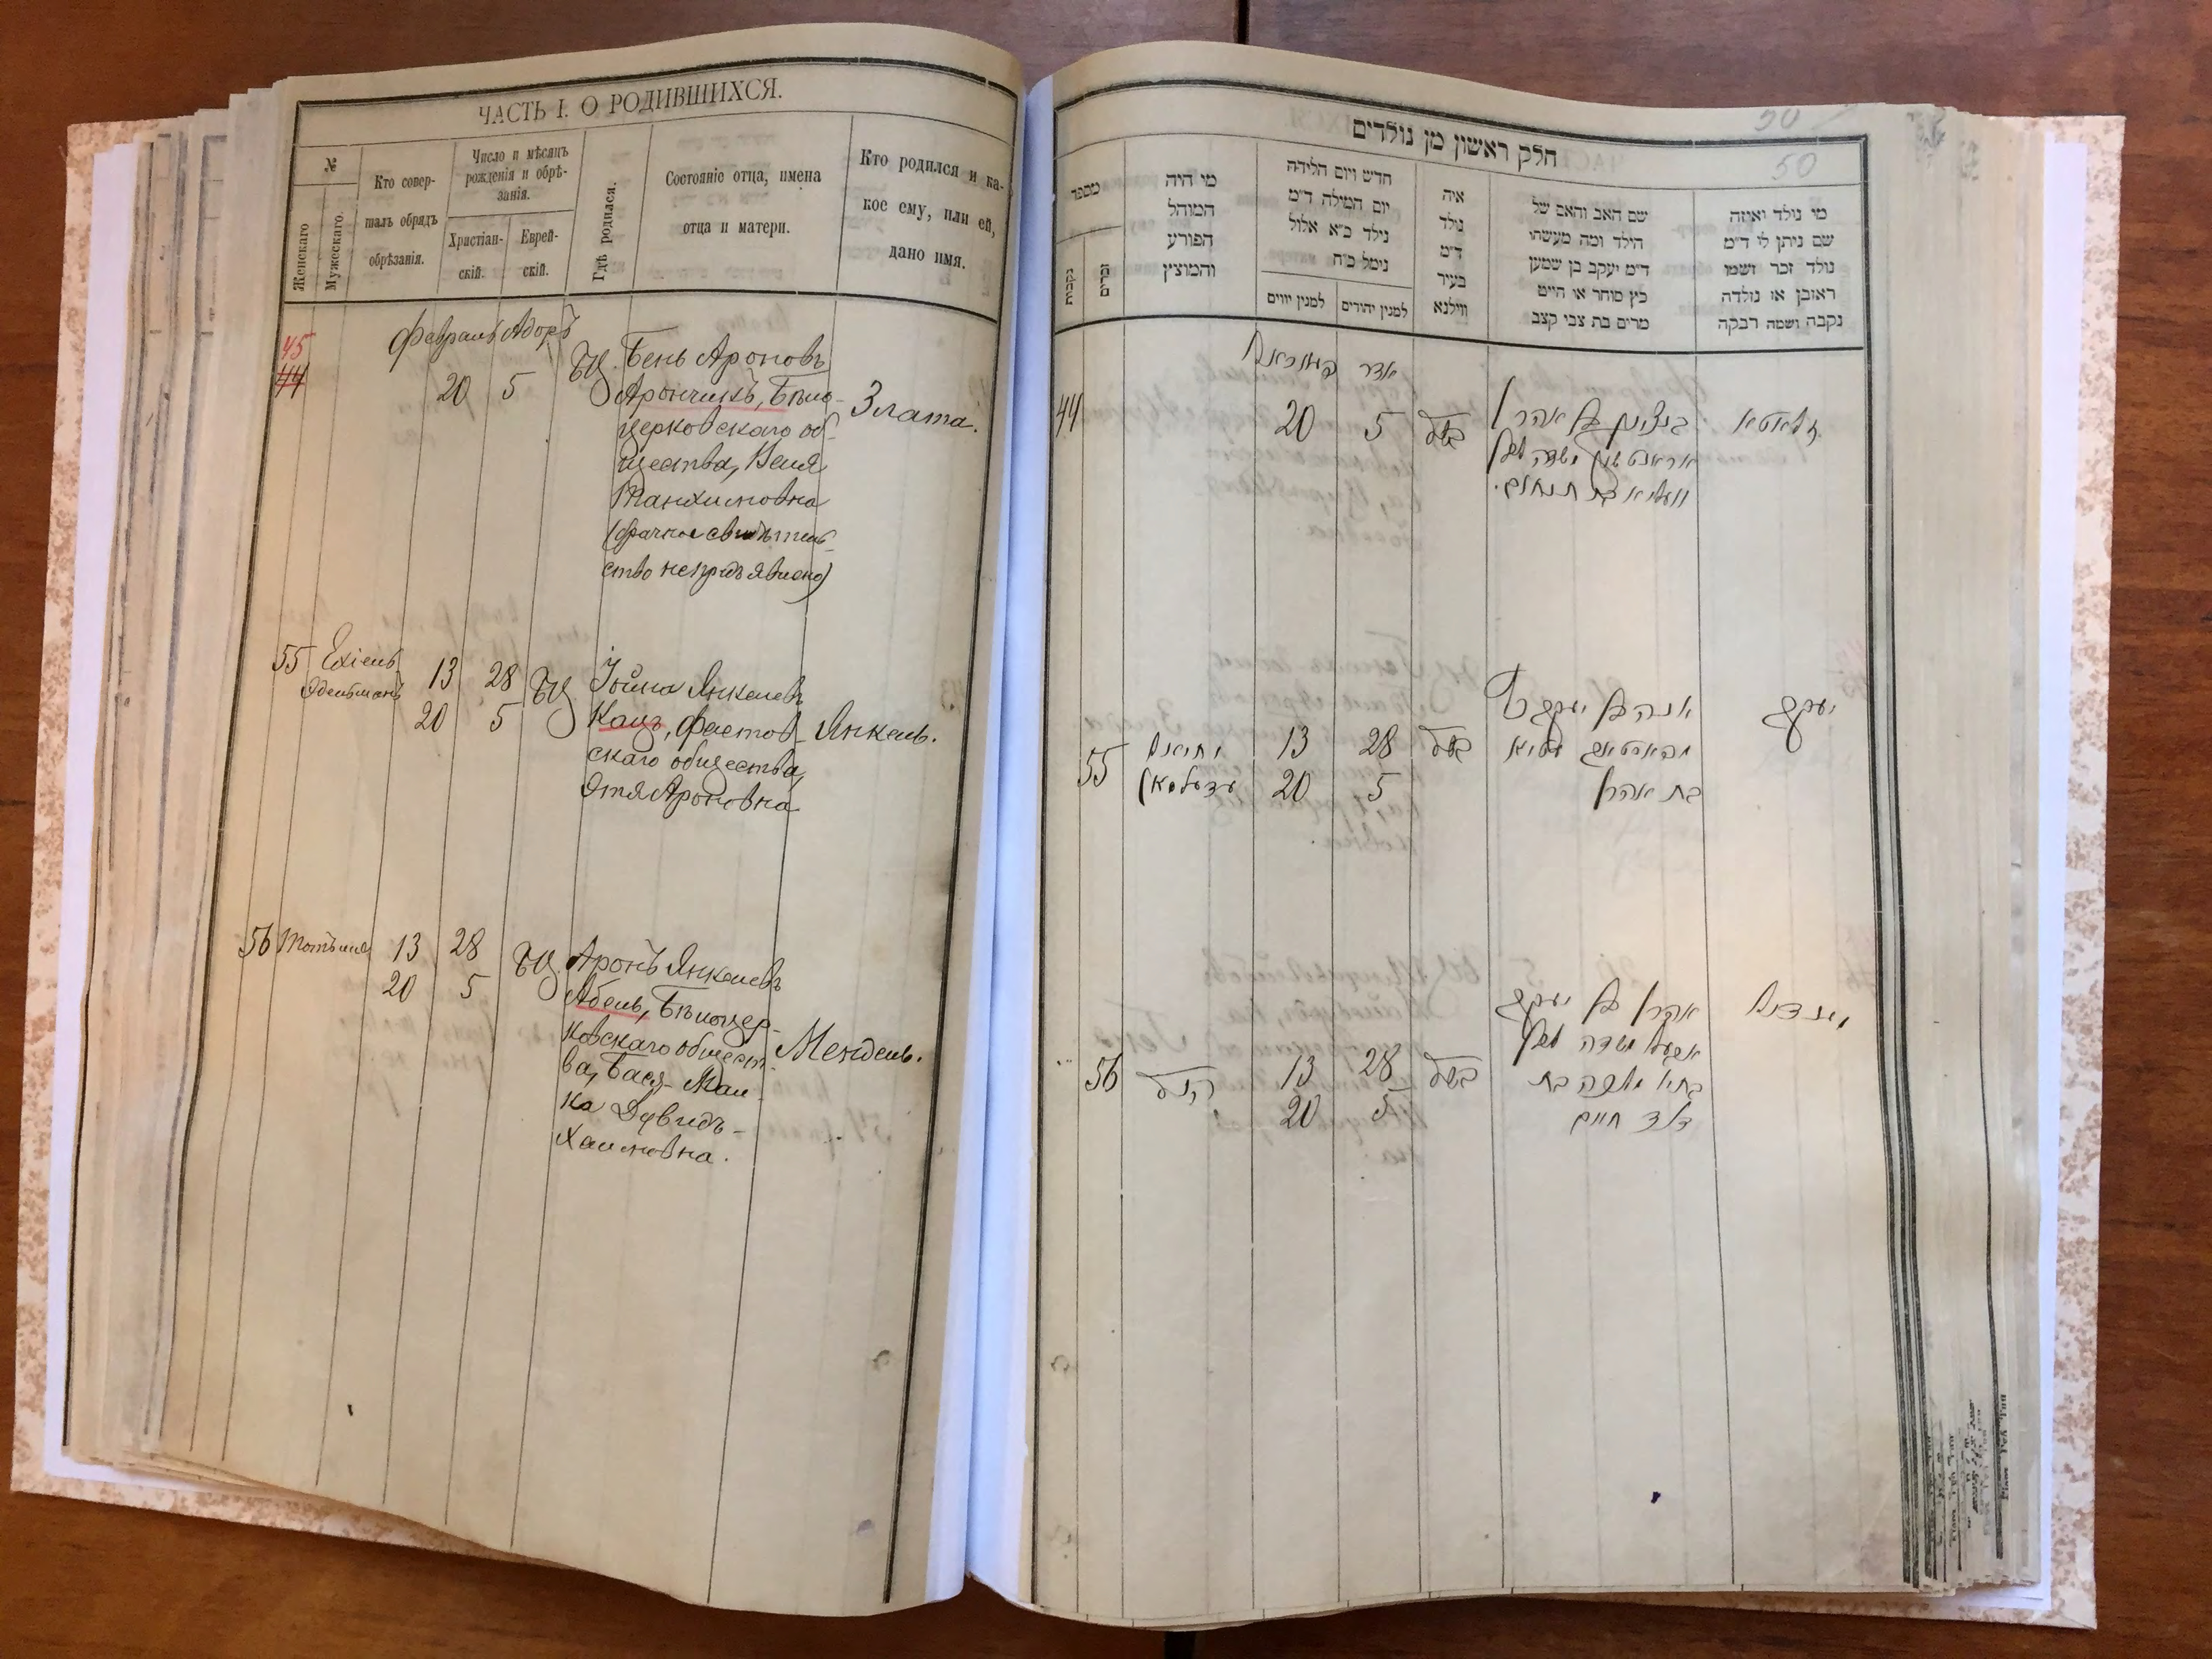 ЧАСТЬ I. О РОДИВШИХСЯ.
№
Женскаго
Мужескаго.
Кто совер-
шалъ обрядъ
обрѣзанія.
Число и мѣсяцъ
рожденія и обрѣ-
занія.
Христіан-
скій.
Еврей-
скій.
Гдѣ родился.
Состояніе отца, имена
отца и матери.
Кто родился и ка-
кое ему, или ей,
дано имя.
Февраль Адоръ
45
44
20 5 БЦ.
Бень Ароновъ
Арончикъ, Бѣло-
церковскаго об-
щества, Веля
Танхимовна
(брачное свидѣтель-
ство непредъявлено)
Злата.
55 Ехіель
Эдельманъ
13 28
20 5
БЦ
Іойна Янкелевъ
Кацъ, Фастов-
скаго общества,
Этя Ароновна
Янкель.
56
13 28
20 5
БЦ.
Аронъ Янкелевъ
Абель, Бѣлоцер-
ковскаго общест-
ва, Бася-Мал-
ка Дувидъ-
Хаимовна.
Мендель.
50
50
חלק ראשון מן נולדים
מספר
נקבות
זכרים
מי היה
המוהל
הפורע
והמוצץ
חדש ויום הלידה
יום המילה ד״מ
נילד כ״א אלול
נימל כ״ח
למנין יווים
למנין יהודים
איה
נולד
ד״מ
בעיר
ווילנא
שם האב והאם של
הילד ומה מעשהו
ד״מ יעקב בן שמעון
כץ סוחר או חייט
מרים בת צבי קצב
מי נולד ואיזה
שם ניתן לי ד״מ
נולד זכר ושמו
ראובן או נולדה
נקבה ושמה רבקה
אדר
44
20 5
זלאטא
55
יחיאל
עדעלמאן
13 28
20 5
בת אהרן
יעקב
56
13 28
20 5
אהרן בן יעקב
דוד חיים
מענדיל